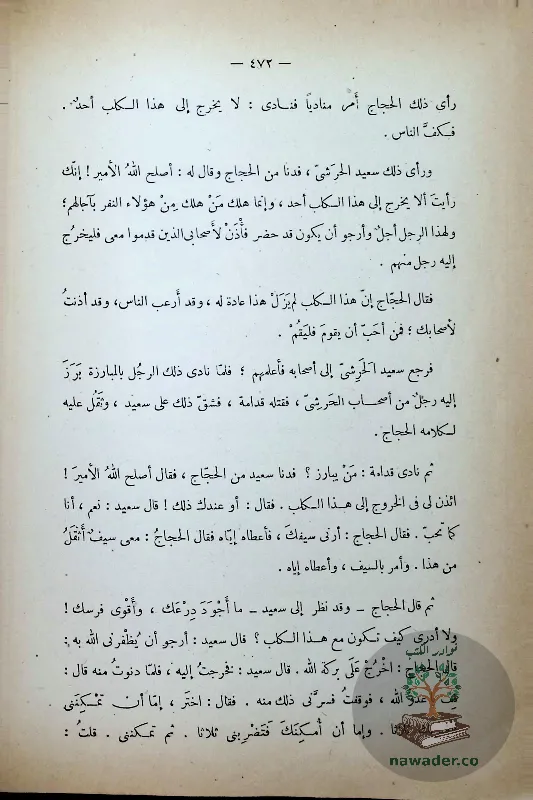 — ٤٧٢ —
رأى ذلك الحجاج أمر مناديا فنادى : لا يخرج إلى هذا الكلب أحدٌ .
فكفَّ الناس .
ورأى ذلك سعيد الحَرَشىّ ، فدنا من الحجاج وقال له : أصلح اللهُ الأمير ! إنّك
رأيتَ ألا يخرج إلى هذا الكلب أحد ، وإنما هلك مَنْ هلك مِنْ هؤلاء النفر بآجالهم ؛
ولهذا الرجل أجلٌ وأرجو أن يكون قد حضر فأْذَنْ لأصحابى الذين قدموا معى فليخرُج
إليه رجل منهم .
فقال الحجّاج إنّ هذا الكلب لم يَزَلْ هذا عادة له ، وقد أرعب الناس ، وقد أذنتُ
لأصحابك ؛ فمن أحبّ أن يقومَ فليَقُمْ .
فرجع سعيد الحَرِشىّ إلى أصحابه فأعلمهم ؛ فلمّا نادى ذلك الرجُل بالمبارزة بَرَزَ
إليه رجلٌ من أصحاب الحَرشِىّ ، فقتله قدامة ، فشقّ ذلك على سعيد ، وثَقُل عليه
لكلامه الحجاج .
ثم نادى قدامة : مَنْ يبارز ؟ فدنا سعيد من الحجّاج ، فقال أصلح اللهُ الأميرَ !
ائذن لى فى الخروج إلى هذا الكلب . فقال : أو عندك ذلك ! قال سعيد : نعم ، أنا
كما تحبّ . فقال الحجاج : أرنى سيفكَ ، فأعطاه إيّاه فقال الحجاجُ : معى سيفٌ أثْقَلُ
من هذا . وأمر بالسيف ، وأعطاه إياه .
ثم قال الحجاج – وقد نظر إلى سعيد – ما أَجْوَدَ دِرْعَك ، وأَقْوى فرسك !
ولا أدرى كيف تكون مع هذا الكلب ؟ قال سعيد : أرجو أن يُظْفرنى الله به :
قال الحجاج : اخْرُجْ عَلَى بركة الله . قال سعيد : فخرجتُ إليه ، فلمّا دنوتُ منه قال :
قِف عدوّ الله ، فوقفتُ فسرَّنى ذلك منه . فقال : اختَر ، إمّا أن تمكننى
ثلاثا . وإما أن أمكِنَكَ فَتَضربنى ثلاثا . ثم تمكننى . قلتُ :
نوادر الكتب
nawader.co